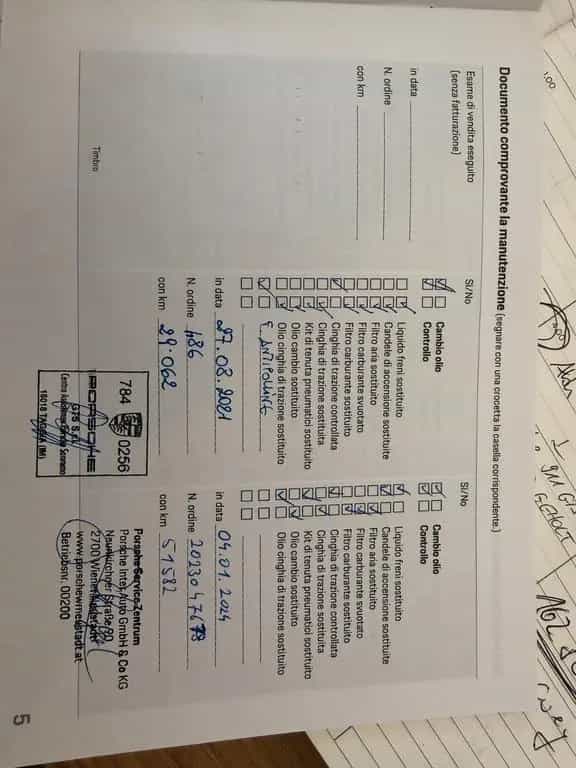 Documento comprovante la manutenzione (segnare con una crocetta la casella corrispondente.)
Esame di vendita eseguito
(senza fatturazione)
in data
N. ordine
con km
Timbro
Sì/No
Cambio olio
Controllo
Liquido freni sostituito
Candele di accensione sostituite
Filtro aria sostituito
Filtro carburante svuotato
Filtro carburante sostituito
Cinghia di trazione controllata
Cinghia di trazione sostituita
Kit di tenuta pneumatici sostituito
Olio cambio sostituito
Olio cinghia di trazione sostituito
F. ANTIPOLLINE
in data 27.08.2021
N. ordine 486
con km 29.062
784 0256
PORSCHE
GPS S.r.l.
Sì/No
Cambio olio
Controllo
Liquido freni sostituito
Candele di accensione sostituite
Filtro aria sostituito
Filtro carburante svuotato
Filtro carburante sostituito
Cinghia di trazione controllata
Cinghia di trazione sostituita
Kit di tenuta pneumatici sostituito
Olio cambio sostituito
Olio cinghia di trazione sostituito
in data 04.01.2024
N. ordine
con km 51582
Porsche Service Zentrum
Porsche Inter Auto GmbH & Co KG
2700 Wiener Neustadt
www.porschewrneustadt.at
Betriebsnr. 00200
5